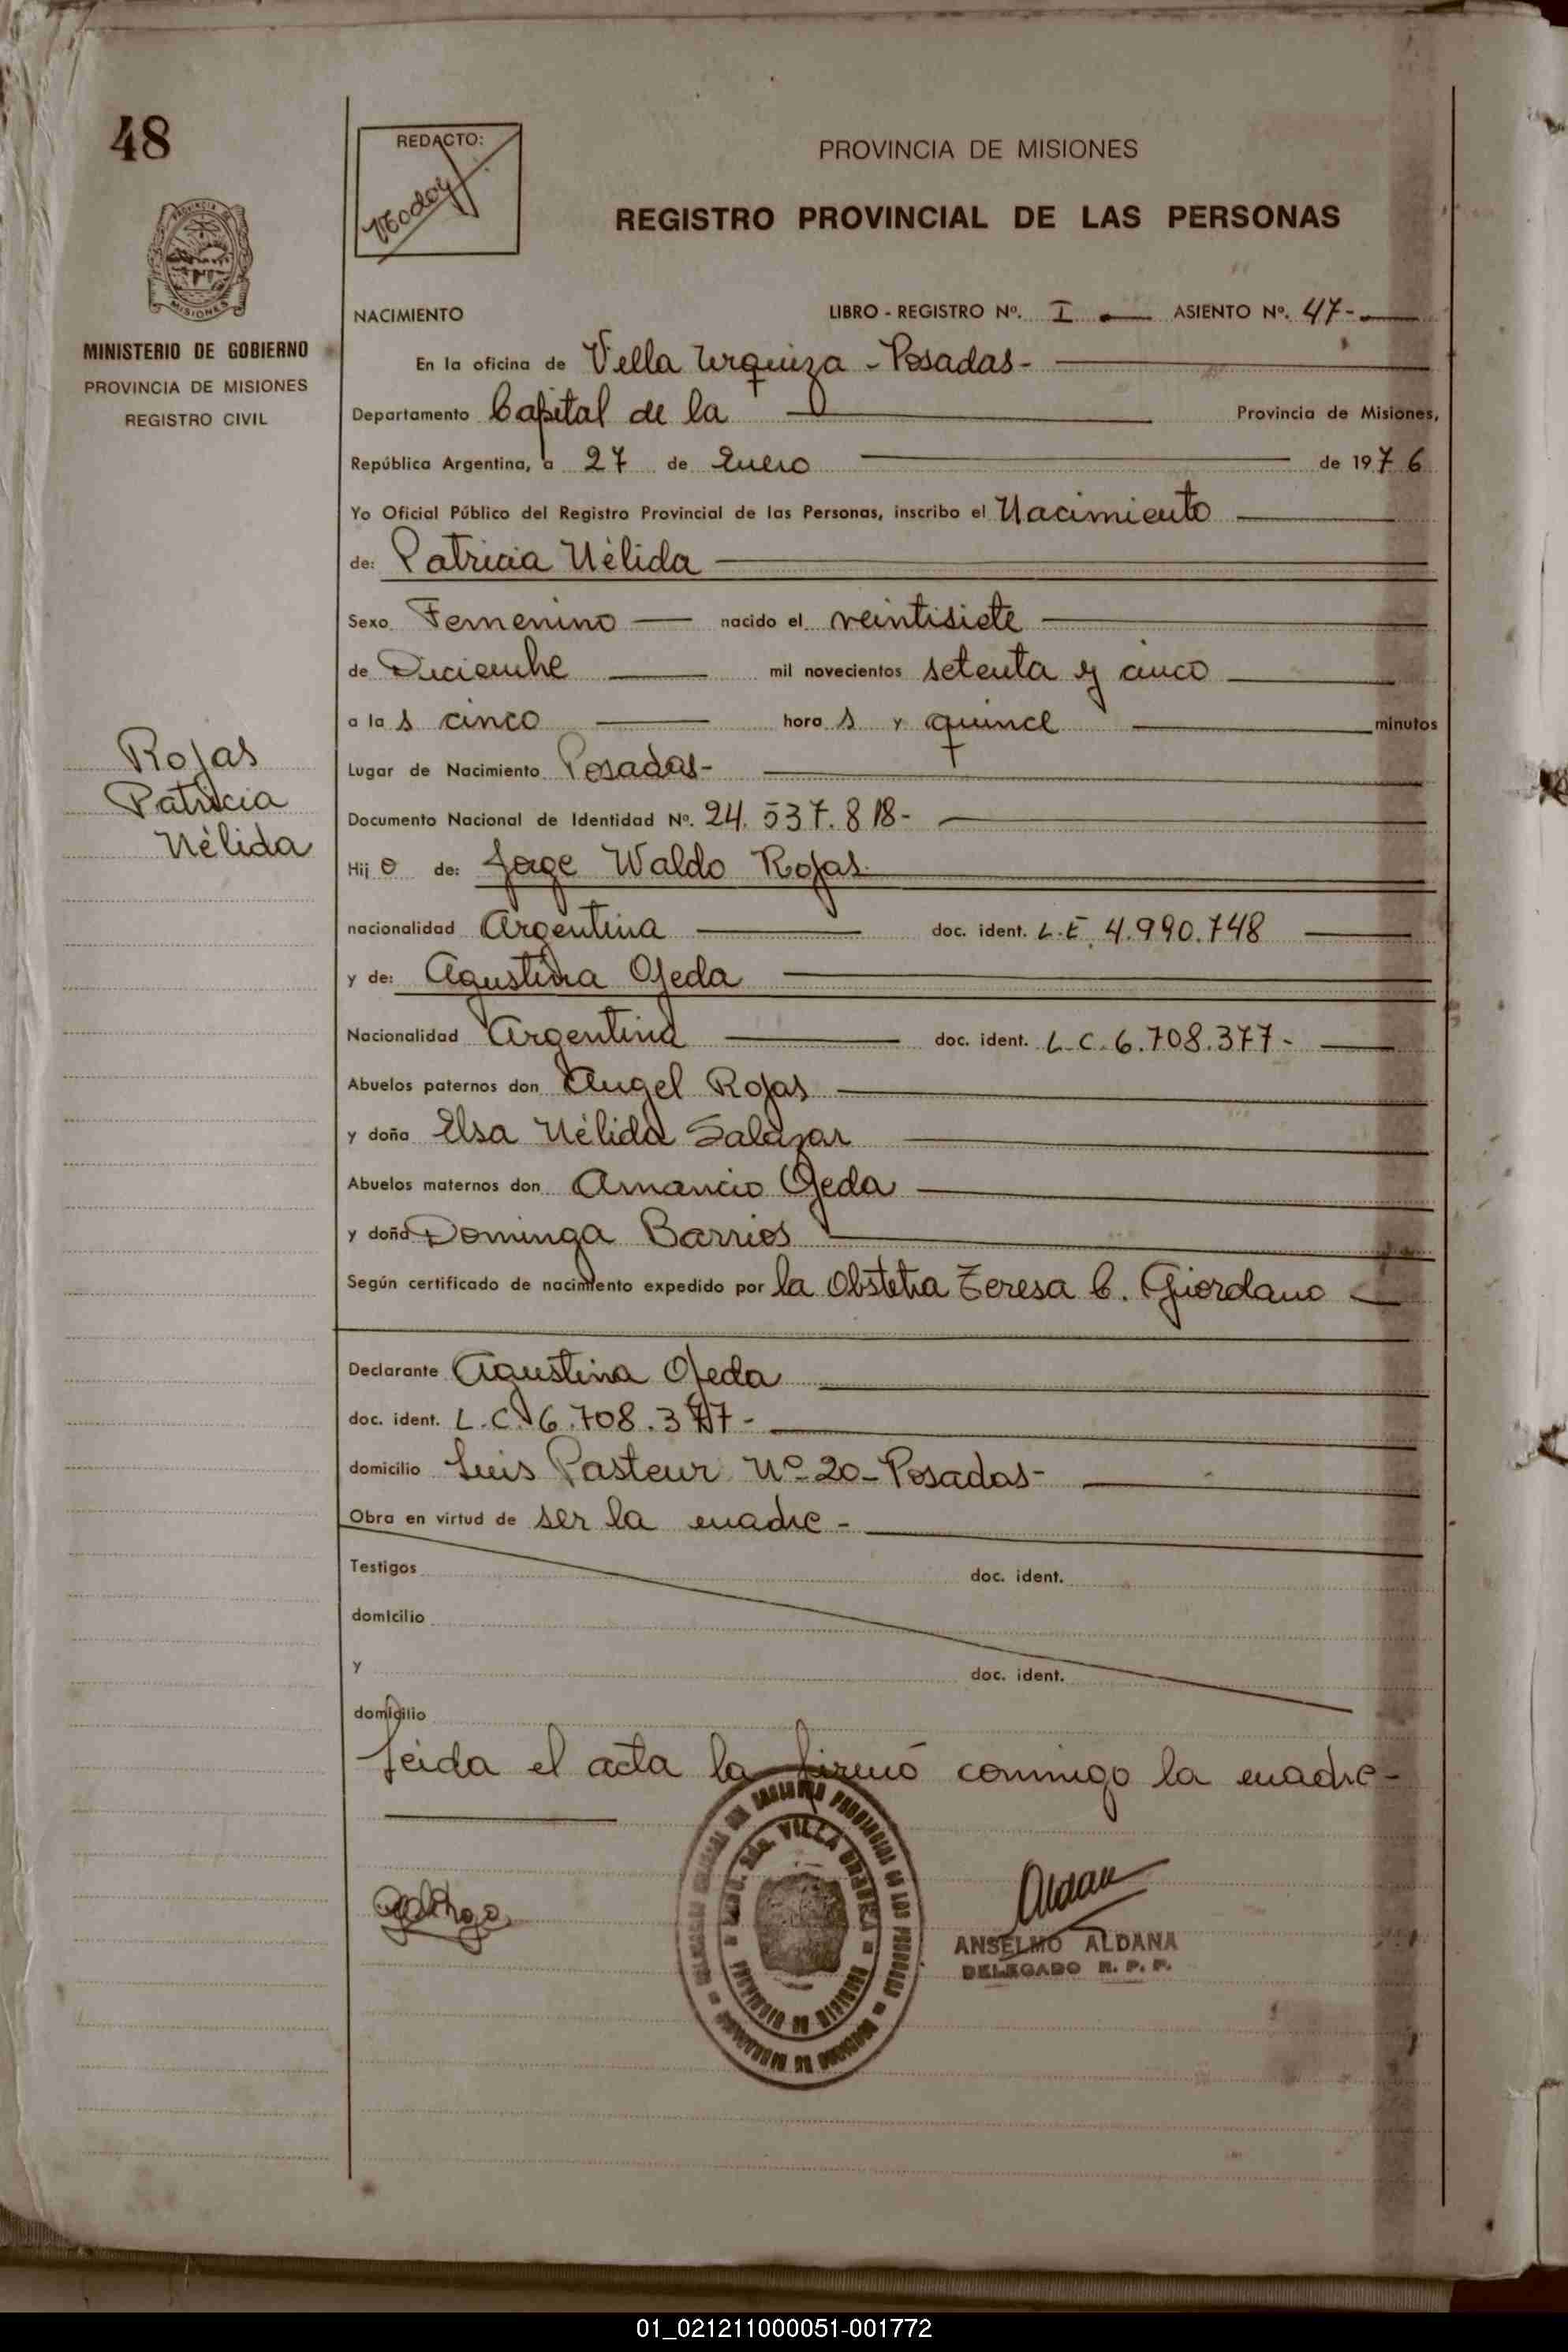 48
REDACTO:
PROVINCIA DE MISIONES
REGISTRO PROVINCIAL DE LAS PERSONAS
PROVINCIA DE
MISIONES
MINISTERIO DE GOBIERNO
PROVINCIA DE MISIONES
REGISTRO CIVIL
NACIMIENTO LIBRO - REGISTRO Nº. I ASIENTO Nº. 47-
En la oficina de Villa Urquiza - Posadas-
Departamento Capital de la Provincia de Misiones,
República Argentina, a 27 de Enero de 1976
Yo Oficial Público del Registro Provincial de las Personas, inscribo el Nacimiento
de: Patricia Nélida
Sexo Femenino nacido el veintisiete
de Diciembre mil novecientos setenta y cinco
a las cinco horas y quince minutos
Lugar de Nacimiento Posadas-
Documento Nacional de Identidad Nº. 24.537.818-
Rojas
Patricia
Nélida
Hijo de: Jorge Waldo Rojas
nacionalidad Argentina doc. ident. L.E. 4.990.748
y de: Agustina Ojeda
Nacionalidad Argentina doc. ident. L.C. 6.708.377-
Abuelos paternos don Angel Rojas
y doña Elsa Nélida Salazar
Abuelos maternos don Amancio Ojeda
y doña Dominga Barrios
Según certificado de nacimiento expedido por la Obstetra Teresa C. Giordano
Declarante Agustina Ojeda
doc. ident. L.C. 6.708.377-
domicilio Luis Pasteur Nº 20-Posadas-
Obra en virtud de ser la madre-
Testigos doc. ident.
domicilio
y doc. ident.
domicilio
Leida el acta la firmó conmigo la madre-
ANSELMO ALDANA
DELEGADO R. P. P.
01_021211000051-001772